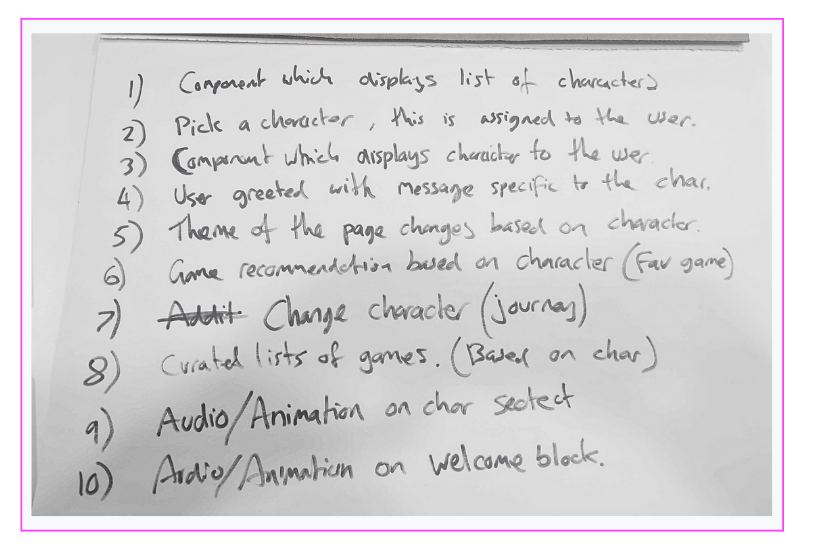 1) Component which displays list of characters
2) Pick a character, this is assigned to the user.
3) Component which displays character to the user.
4) User greeted with message specific to the char.
5) Theme of the page changes based on character.
6) Game recommendation based on character (Fav game)
7) Addit Change character (journey)
8) Curated lists of games. (Based on char)
9) Audio/Animation on char seotect
10) Audio/Animation on welcome block.